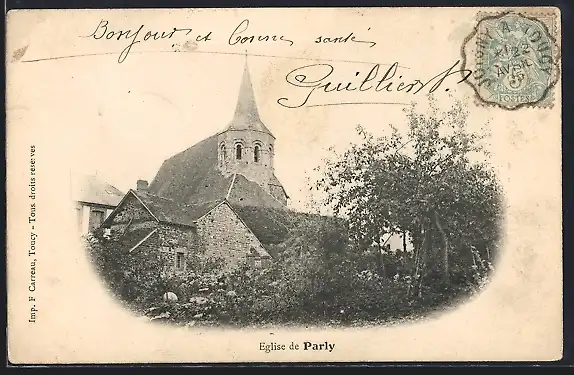 Bonjour et Bonne santé
Guillier
Imp. F Carreau, Toucy - Tous droits réservés
Eglise de Parly